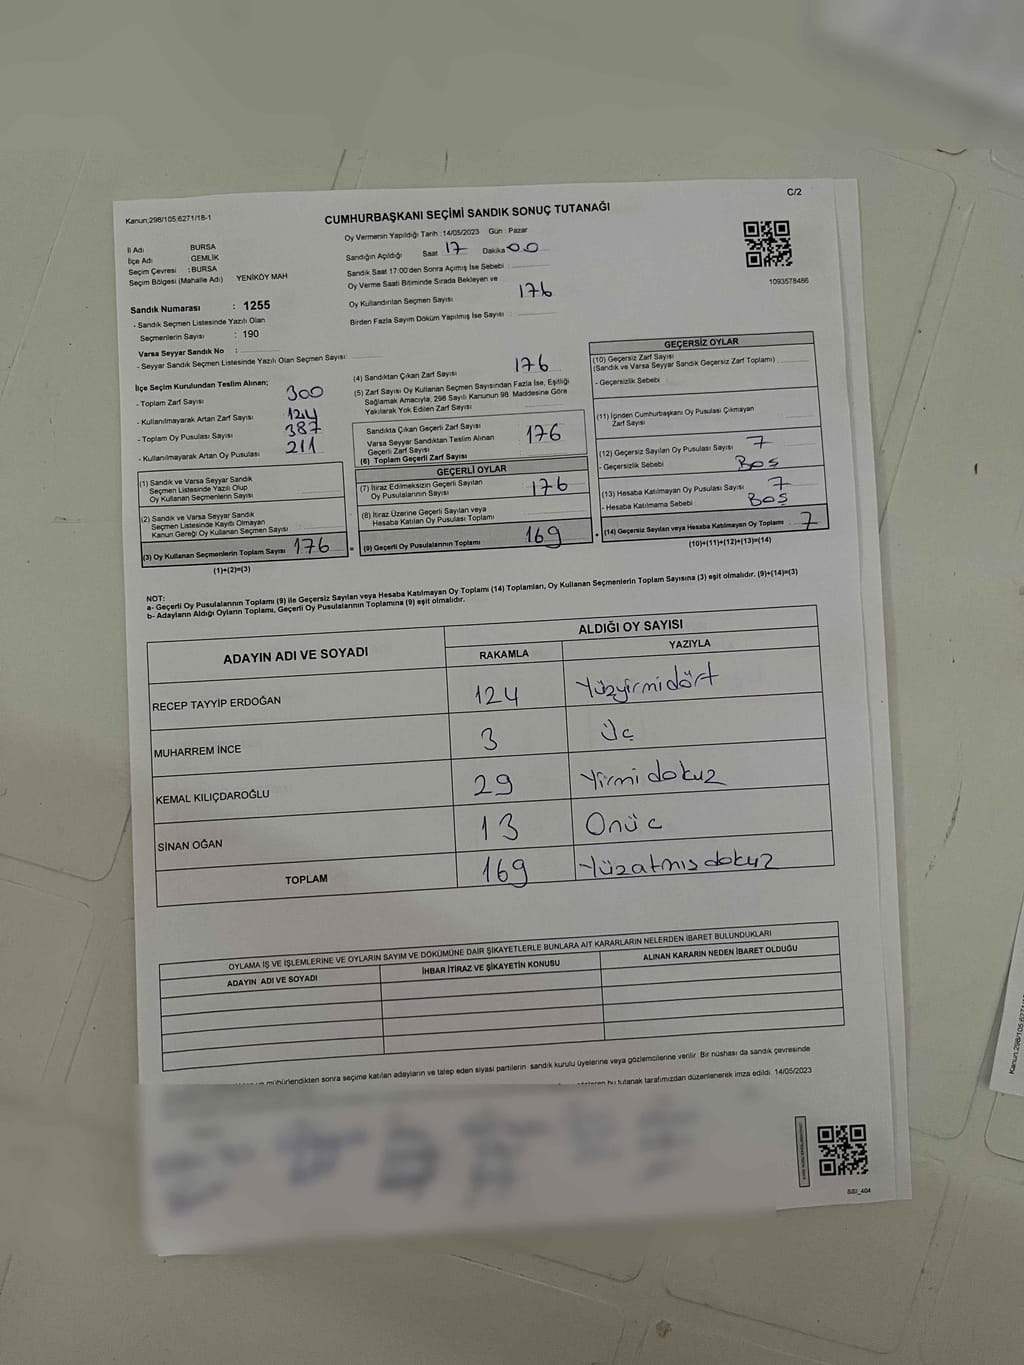 C/2
Kanun:298/105;6271/18-1
CUMHURBAŞKANI SEÇİMİ SANDIK SONUÇ TUTANAĞI
Oy Vermenin Yapıldığı Tarih :14/05/2023 Gün : Pazar
İl Adı BURSA
İlçe Adı GEMLİK
Seçim Çevresi : BURSA
Seçim Bölgesi (Mahalle Adı) YENİKÖY MAH
Sandık Numarası : 1255
- Sandık Seçmen Listesinde Yazılı Olan
Seçmenlerin Sayısı : 190
Varsa Seyyar Sandık No :
- Seyyar Sandık Seçmen Listesinde Yazılı Olan Seçmen Sayısı:
Sandığın Açıldığı Saat 17 Dakika 00
Sandık Saat 17:00'den Sonra Açımış İse Sebebi :
Oy Verme Saati Bitiminde Sırada Bekleyen ve
Oy Kullandırılan Seçmen Sayısı 176
Birden Fazla Sayım Döküm Yapılmış İse Sayısı :
1093578486
İlçe Seçim Kurulundan Teslim Alınan;
- Toplam Zarf Sayısı 300
- Kullanılmayarak Artan Zarf Sayısı 124
- Toplam Oy Pusulası Sayısı 387
- Kullanılmayarak Artan Oy Pusulası 211
(1) Sandık ve Varsa Seyyar Sandık
Seçmen Listesinde Yazılı Olup
Oy Kullanan Seçmenlerin Sayısı
(2) Sandık ve Varsa Seyyar Sandık
Seçmen Listesinde Kayıtlı Olmayan
Kanun Gereği Oy Kullanan Seçmen Sayısı
(3) Oy Kullanan Seçmenlerin Toplam Sayısı 176
(1)+(2)=(3)
(4) Sandıktan Çıkan Zarf Sayısı 176
(5) Zarf Sayısı Oy Kullanan Seçmen Sayısından Fazla İse, Eşitliği
Sağlamak Amacıyla; 298 Sayılı Kanunun 98. Maddesine Göre
Yakılarak Yok Edilen Zarf Sayısı
Sandıkta Çıkan Geçerli Zarf Sayısı
Varsa Seyyar Sandıktan Teslim Alınan
Geçerli Zarf Sayısı
(6) Toplam Geçerli Zarf Sayısı 176
GEÇERLİ OYLAR
(7) İtiraz Edilmeksizin Geçerli Sayılan
Oy Pusulalarının Sayısı : 176
(8) İtiraz Üzerine Geçerli Sayılan veya
Hesaba Katılan Oy Pusulası Toplamı
(9) Geçerli Oy Pusulalarının Toplamı 169
GEÇERSİZ OYLAR
(10) Geçersiz Zarf Sayısı
(Sandık ve Varsa Seyyar Sandık Geçersiz Zarf Toplamı)
- Geçersizlik Sebebi :
(11) İçinden Cumhurbaşkanı Oy Pusulası Çıkmayan
Zarf Sayısı
(12) Geçersiz Sayılan Oy Pusulası Sayısı 7
- Geçersizlik Sebebi Boş
(13) Hesaba Katılmayan Oy Pusulası Sayısı 7
- Hesaba Katılmama Sebebi BOŞ
(14) Geçersiz Sayılan veya Hesaba Katılmayan Oy Toplamı 7
(10)+(11)+(12)+(13)=(14)
NOT:
a- Geçerli Oy Pusulalarının Toplamı (9) ile Geçersiz Sayılan veya Hesaba Katılmayan Oy Toplamı (14) Toplamları, Oy Kullanan Seçmenlerin Toplam Sayısına (3) eşit olmalıdır. (9)+(14)=(3)
b- Adayların Aldığı Oyların Toplamı, Geçerli Oy Pusulalarının Toplamına (9) eşit olmalıdır.
ADAYIN ADI VE SOYADI ALDIĞI OY SAYISI
RAKAMLA YAZIYLA
RECEP TAYYİP ERDOĞAN 124 Yüzyirmidört
MUHARREM İNCE 3 Üç
KEMAL KILIÇDAROĞLU 29 Yirmi dokuz
SİNAN OĞAN 13 Onüc
TOPLAM 169 Yüzatmısdokuz
OYLAMA İŞ VE İŞLEMLERİNE VE OYLARIN SAYIM VE DÖKÜMÜNE DAİR ŞİKAYETLERLE BUNLARA AİT KARARLARIN NELERDEN İBARET BULUNDUKLARI
ADAYIN ADI VE SOYADI İHBAR İTİRAZ VE ŞİKAYETİN KONUSU ALINAN KARARIN NEDEN İBARET OLDUĞU
mühürlendikten sonra seçime katılan adayların ve talep eden siyasi partilerin sandık kurulu üyelerine veya gözlemcilerine verilir. Bir nüshası da sandık çevresinde
bu tutanak tarafımızdan düzenlenerek imza edildi. 14/05/2023
SSI_404
Kanun:298/105;6271/